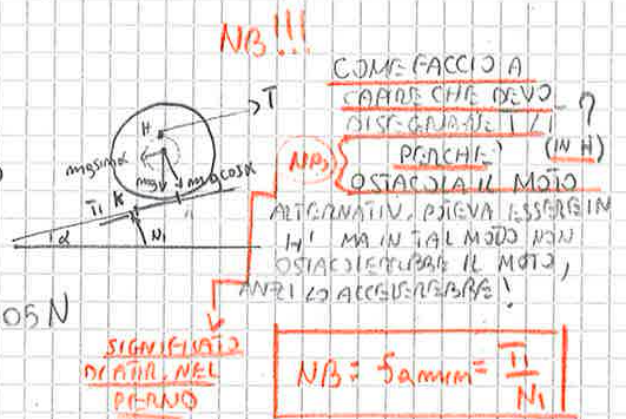 NB!!!
COME FACCIO A
CAPIRE CHE DEVO
DISEGNARE T/1 ?
(IN H)
NB:
PERCHE'
OSTACOLA IL MOTO
ALTERNATIV. POTEVA ESSERE IN
H' MA IN TAL MODO NON
OSTACOLEREBBE IL MOTO,
ANZI LO ACCELEREREBBE!
T
H
mgsinα
mg
mgcosα
T1
K
N1
α
05 N
SIGNIFICATO
DI ATTR. NEL
PERNO
NB: fa min = T1
N1